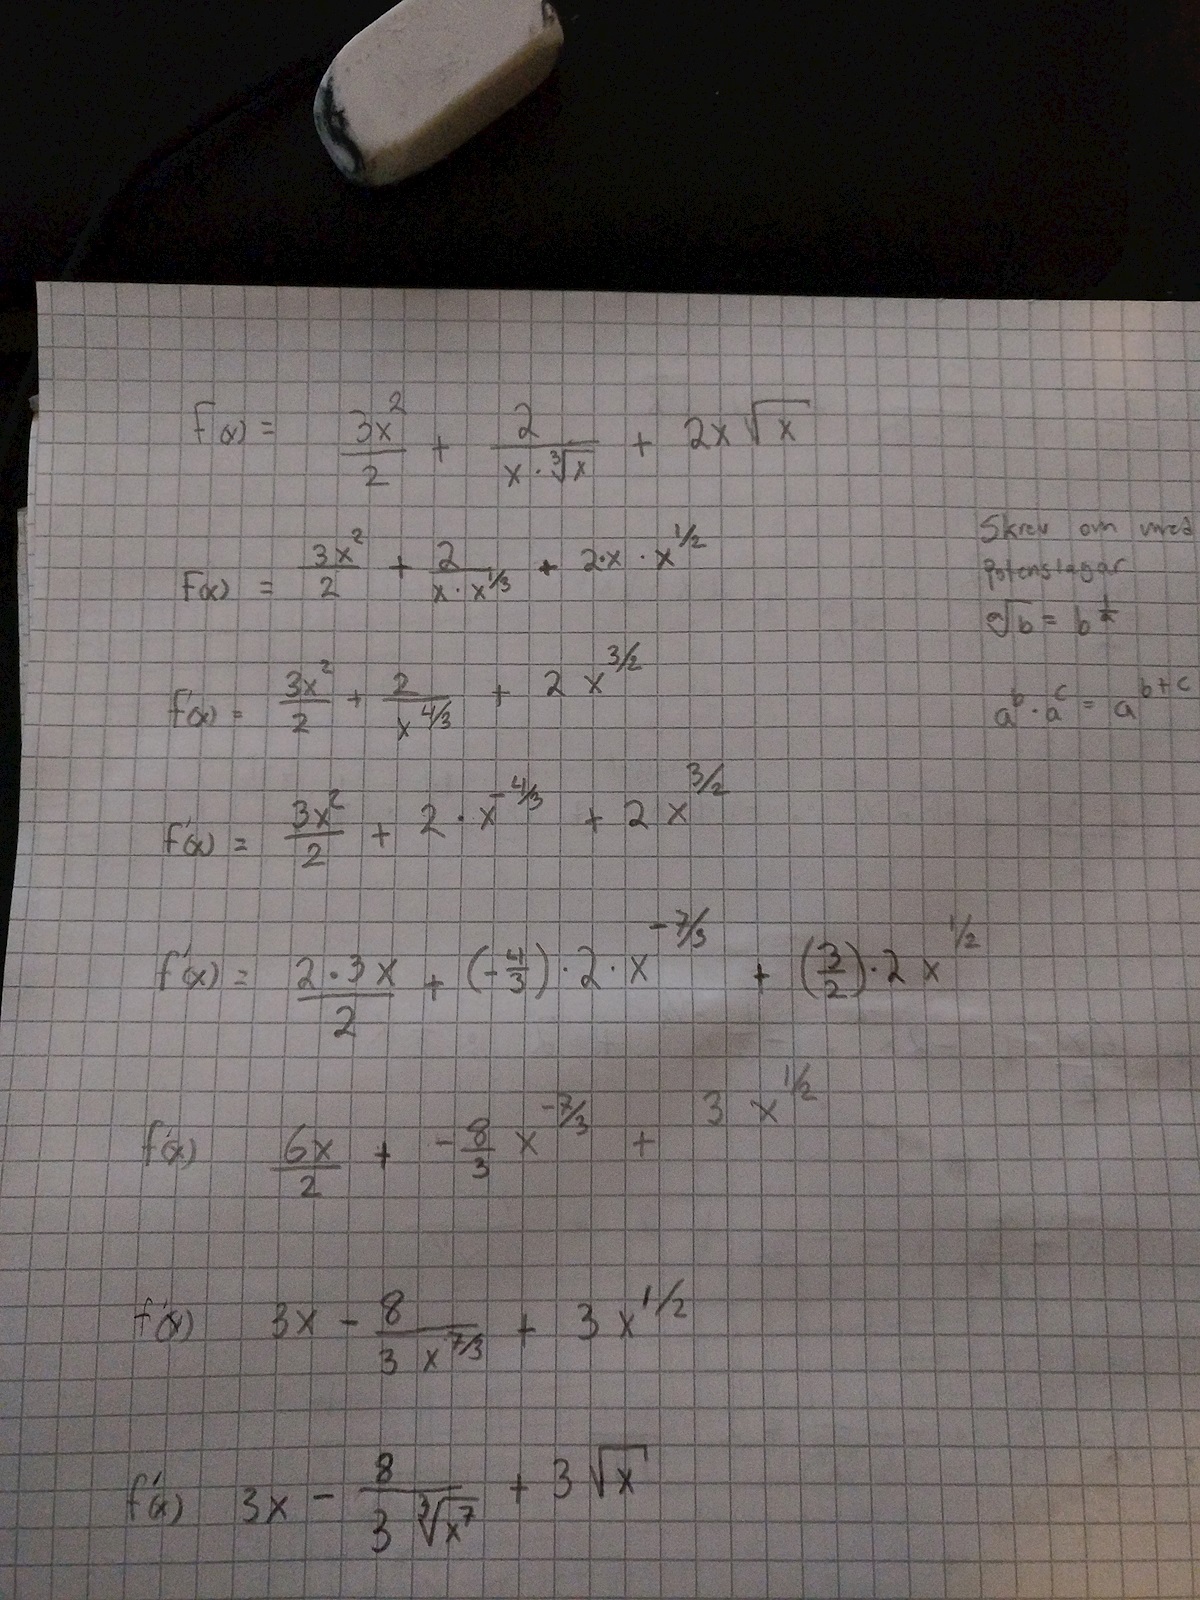 F(x) = 3x²/2 + 2/(x · ∛x) + 2x√x
F(x) = 3x²/2 + 2/(x · x^1/3) + 2·x · x^1/2
Skrev om med
potenslagar
ⁿ√b = b^1/n
f'(x) = 3x²/2 + 2/x^4/3 + 2 x^3/2
a^b · a^c = a^b+c
f'(x) = 3x²/2 + 2 · x^-4/3 + 2 x^3/2
f'(x) = 2·3x/2 + (-4/3) · 2 · x^-7/3 + (3/2) · 2 x^1/2
f'(x) 6x/2 + -8/3 x^-7/3 + 3 x^1/2
f'(x) 3x - 8/(3 x^7/3) + 3 x^1/2
f'(x) 3x - 8/(3 ∛x⁷) + 3√x